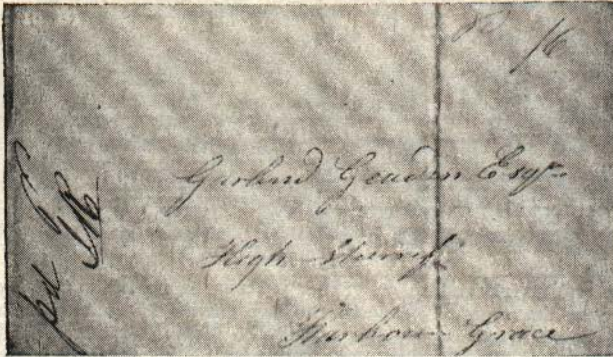 Garland Gaden Esqr.
High Sheriff
Harbour Grace
pd